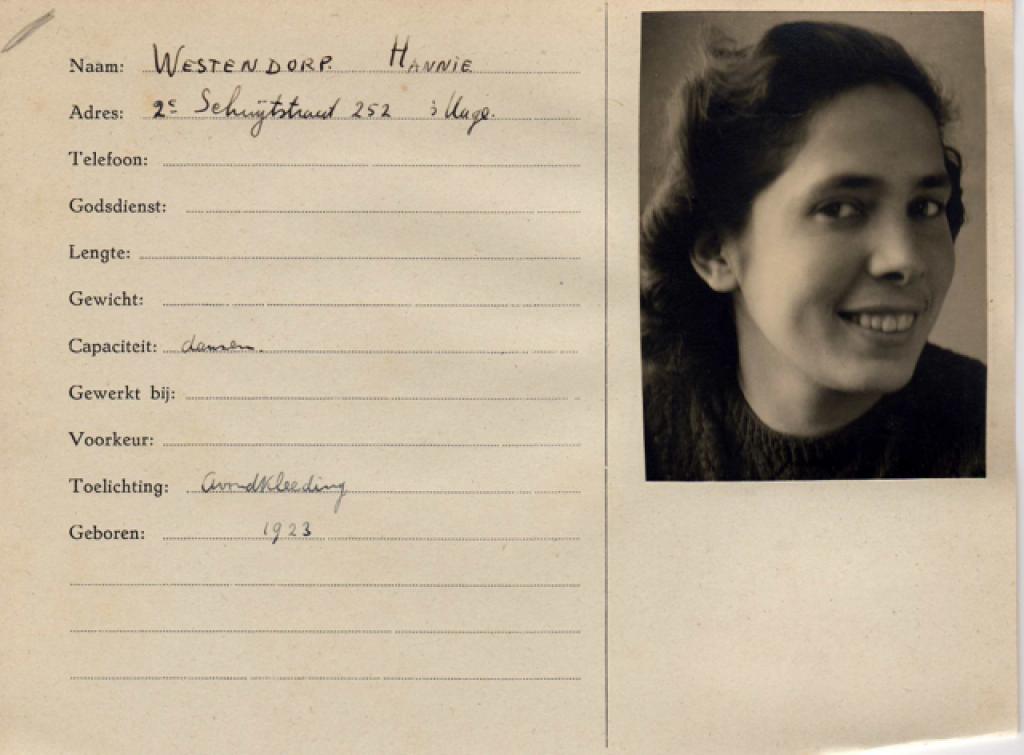 Naam: WESTENDORP. HANNIE
Adres: 2e Schuytstraat 252 's Hage.
Telefoon:
Godsdienst:
Lengte:
Gewicht:
Capaciteit: dansen.
Gewerkt bij:
Voorkeur:
Toelichting: Avondkleeding
Geboren: 1923